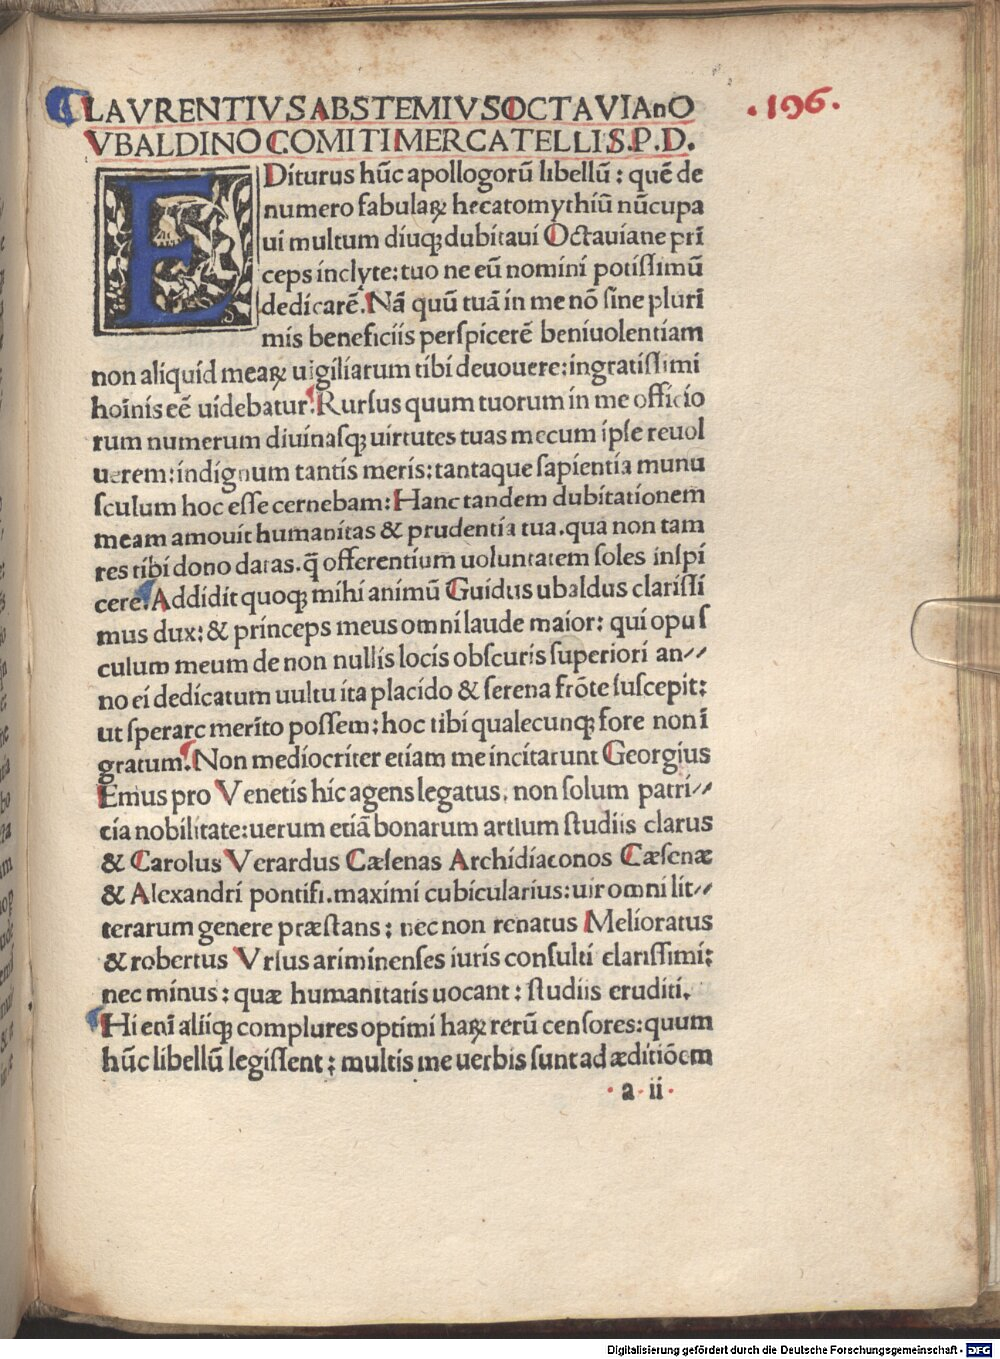 LAVRENTIVS ABSTEMIVS OCTAVIAnO
VBALDINO COMITI MERCATELLI S.P.D.
.196.
EDiturus hūc apollogorū libellū : quē de
numero fabulaꝝ hecatomythiū nūcupa
ui multum diuqꝫ dubitaui Octauiane prī
ceps inclyte: tuo ne eū nomini potissimū
dedicarē. Nā quū tuā in me nō sine pluri
mis beneficiis perspicerē beniuolentiam
non aliquid meaꝝ uigiliarum tibi deuouere: ingratissimi
hoīnis eē uidebatur. Rursus quum tuorum in me officio
rum numerum diuinasqꝫ uirtutes tuas mecum ipse reuol
uerem: indignum tantis meris: tantaque sapientia munu
sculum hoc esse cernebam: Hanc tandem dubitationem
meam amouit humanitas & prudentia tua. qua non tam
res tibi dono datas. q̄ offerentium uoluntatem soles inspi
cere. Addidit quoqꝫ mihi animū Guidus ubaldus clarissi
mus dux: & princeps meus omni laude maior: qui opus
culum meum de non nullis locis obscuris superiori an//
no ei dedicatum uultu ita placido & serena frōte suscepit:
ut sperare merito possem: hoc tibi qualecunqꝫ fore non ī
gratum. Non mediocriter etiam me incitarunt Georgius
Emus pro Venetis hic agens legatus, non solum patri//
cia nobilitate: uerum etiā bonarum artium studiis clarus
& Carolus Verardus Cæsenas Archidiaconos Cæsenæ
& Alexandri pontifi. maximi cubicularius: uir omni lit//
terarum genere præstans : nec non renatus Melioratus
& robertus Vrsus ariminenses iuris consulti clarissimi:
nec minus : quæ humanitatis uocant : studiis eruditi.
Hi enī aliiqꝫ complures optimi haꝝ rerū censores: quum
hūc libellū legissent : multis me uerbis sunt ad æditiōem
a ii
Digitalisierung gefördert durch die Deutsche Forschungsgemeinschaft - DFG